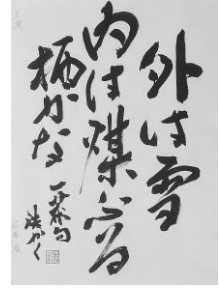 外は雪
内は煤ふる
栖かな
一茶句
かく